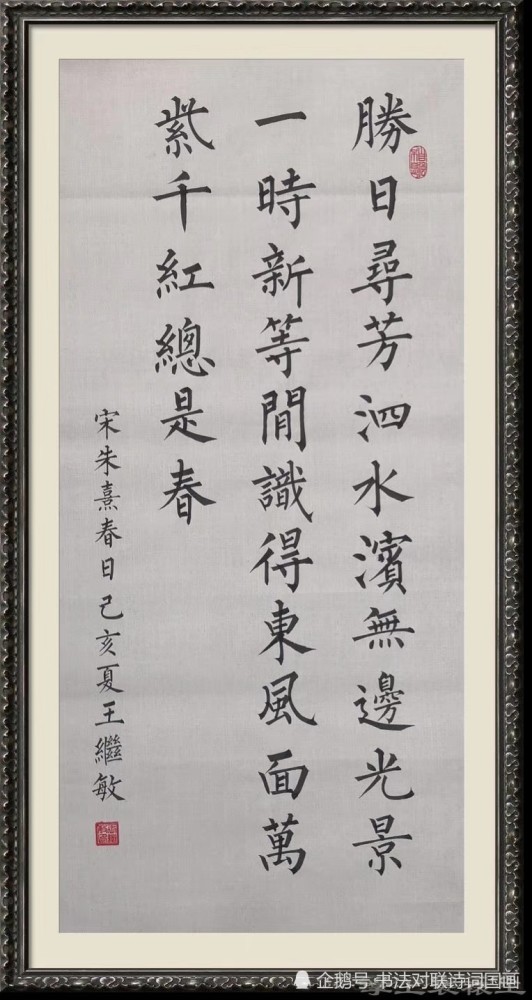 勝日尋芳泗水濱無邊光景
一時新等閒識得東風面萬
紫千紅總是春
宋朱熹春日己亥夏王繼敏
企鹅号 书法对联诗词国画